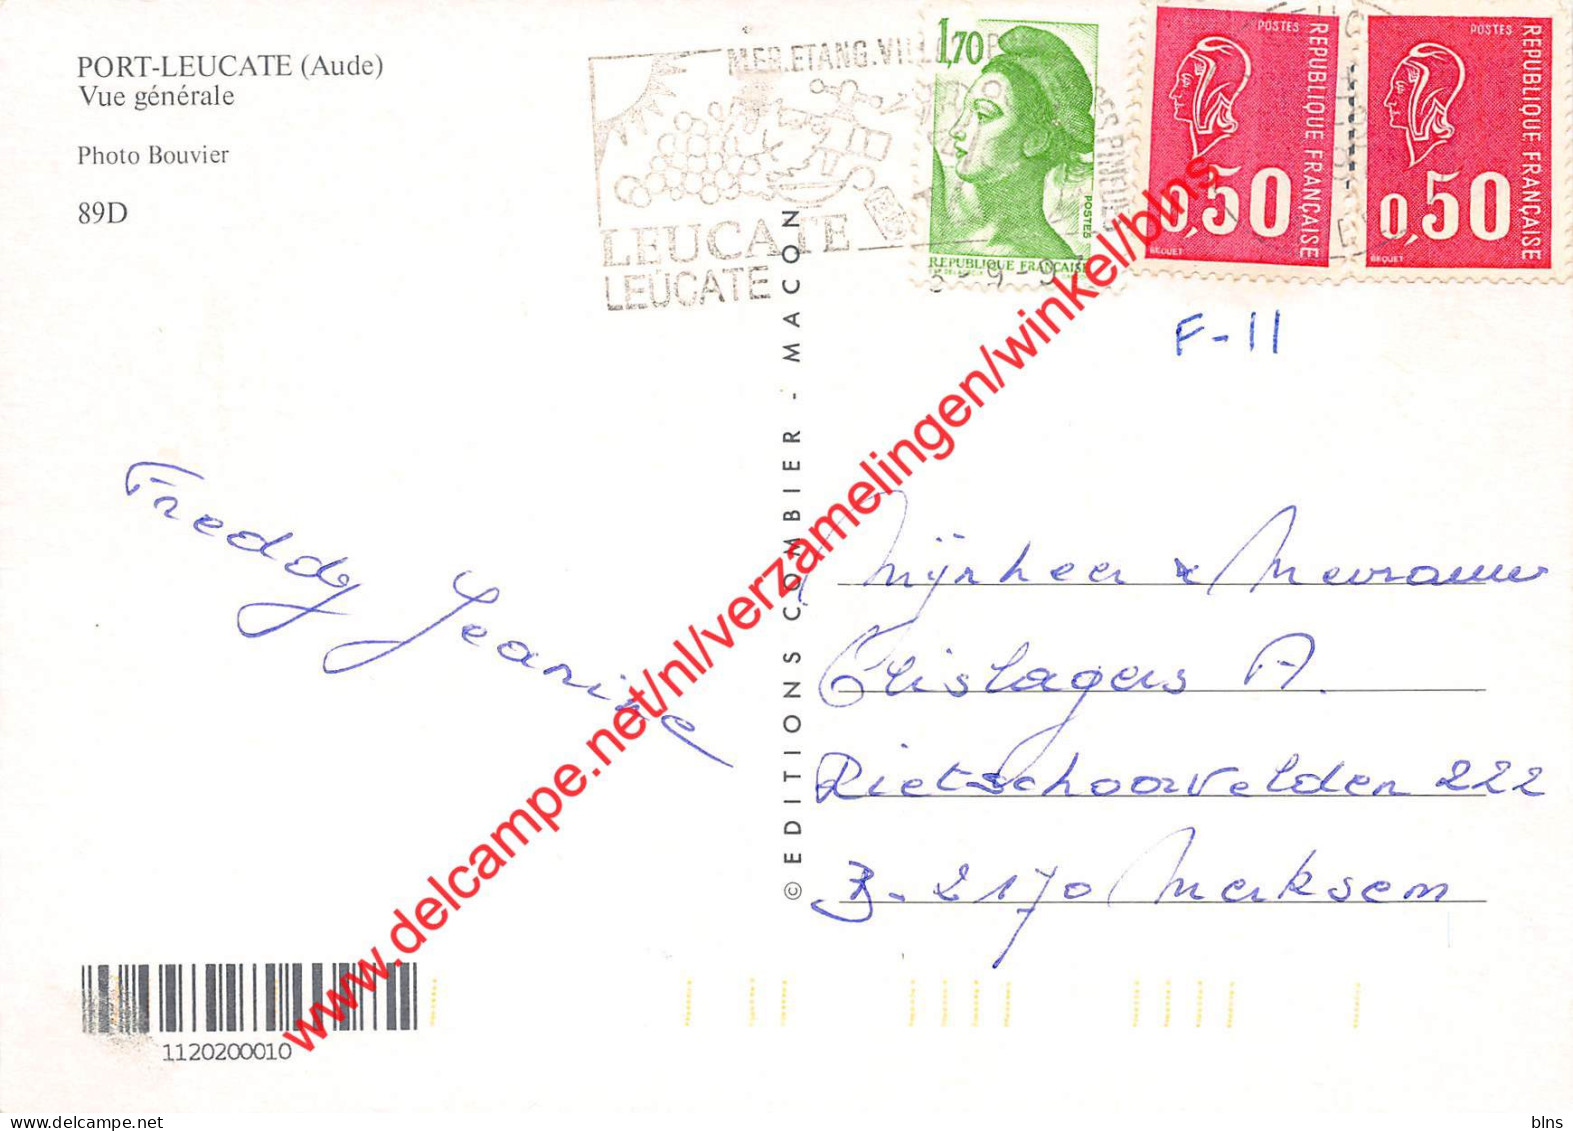 PORT-LEUCATE (Aude)
Vue générale
Photo Bouvier
89D
MER.ETANG.VILL
LEUCATE
LEUCATE
1,70
POSTES
REPUBLIQUE FRANÇAISE
POSTES
REPUBLIQUE FRANÇAISE
0,50
BEQUET
POSTES
REPUBLIQUE FRANÇAISE
0,50
BEQUET
F-11
Freddy Jeanine
© EDITIONS COMBIER - MACON
Mijnheer & Mevrouw
A.
Rietschoorvelden 222
B-2170 Merksem
1120200010
www.delcampe.net/nl/verzamelingen/winkel/blns
blns